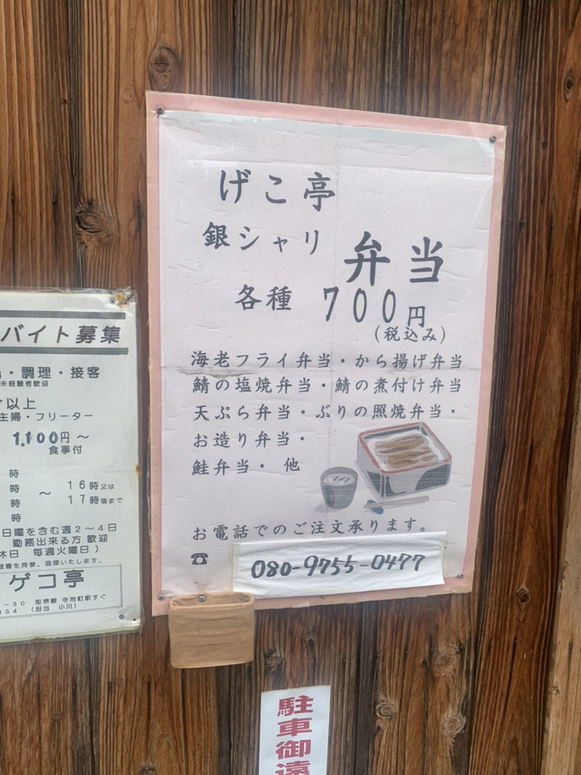 げこ亭
銀シャリ 弁当
各種 700円
(税込み)
海老フライ弁当・から揚げ弁当
鯖の塩焼弁当・鯖の煮付け弁当
天ぷら弁当・ぶりの照焼弁当・
お造り弁当・
鮭弁当・ 他
お電話でのご注文承ります。
☎ 080-9755-0477
バイト募集
・調理・接客
未経験者歓迎
以上
主婦・フリーター
1,100円~
食事付
時
時 ~ 16時又は
時 17時頃まで
時
日曜を含む週2~4日
勤務出来る方 歓迎
休日 毎週火曜日)
ゲコ亭
-30 阪堺線 寺地町駅すぐ
934 (担当 小川)
駐車御遠